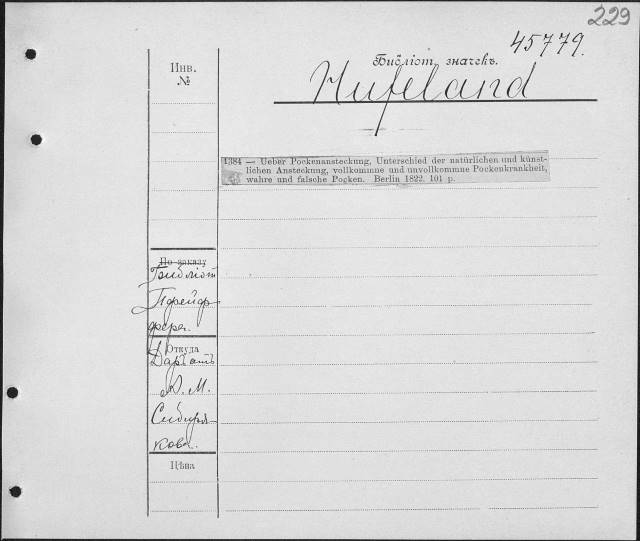 229
45779.
Инв.
№
Библіот. значекъ.
Hufeland
1384 — Ueber Pockenansteckung, Unterschied der natürlichen und künst-
lichen Ansteckung, vollkommne und unvollkommne Pockenkrankheit,
wahre und falsche Pocken. Berlin 1822. 101 p.
По заказу
Библіот
Пфейф
фера.
Откуда
Даръ отъ
М.
Сибиря-
кова.
Цѣна